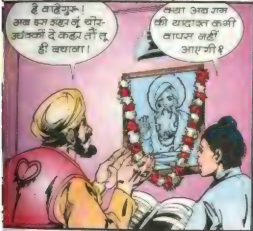 हे वाहेगुरू!
अब इस शहर नूं चोर-
उचक्कों दे कहर तों तू
ही बचाना!
क्या अब राम
की याद्दाश्त कभी
वापस नहीं
आएगी?